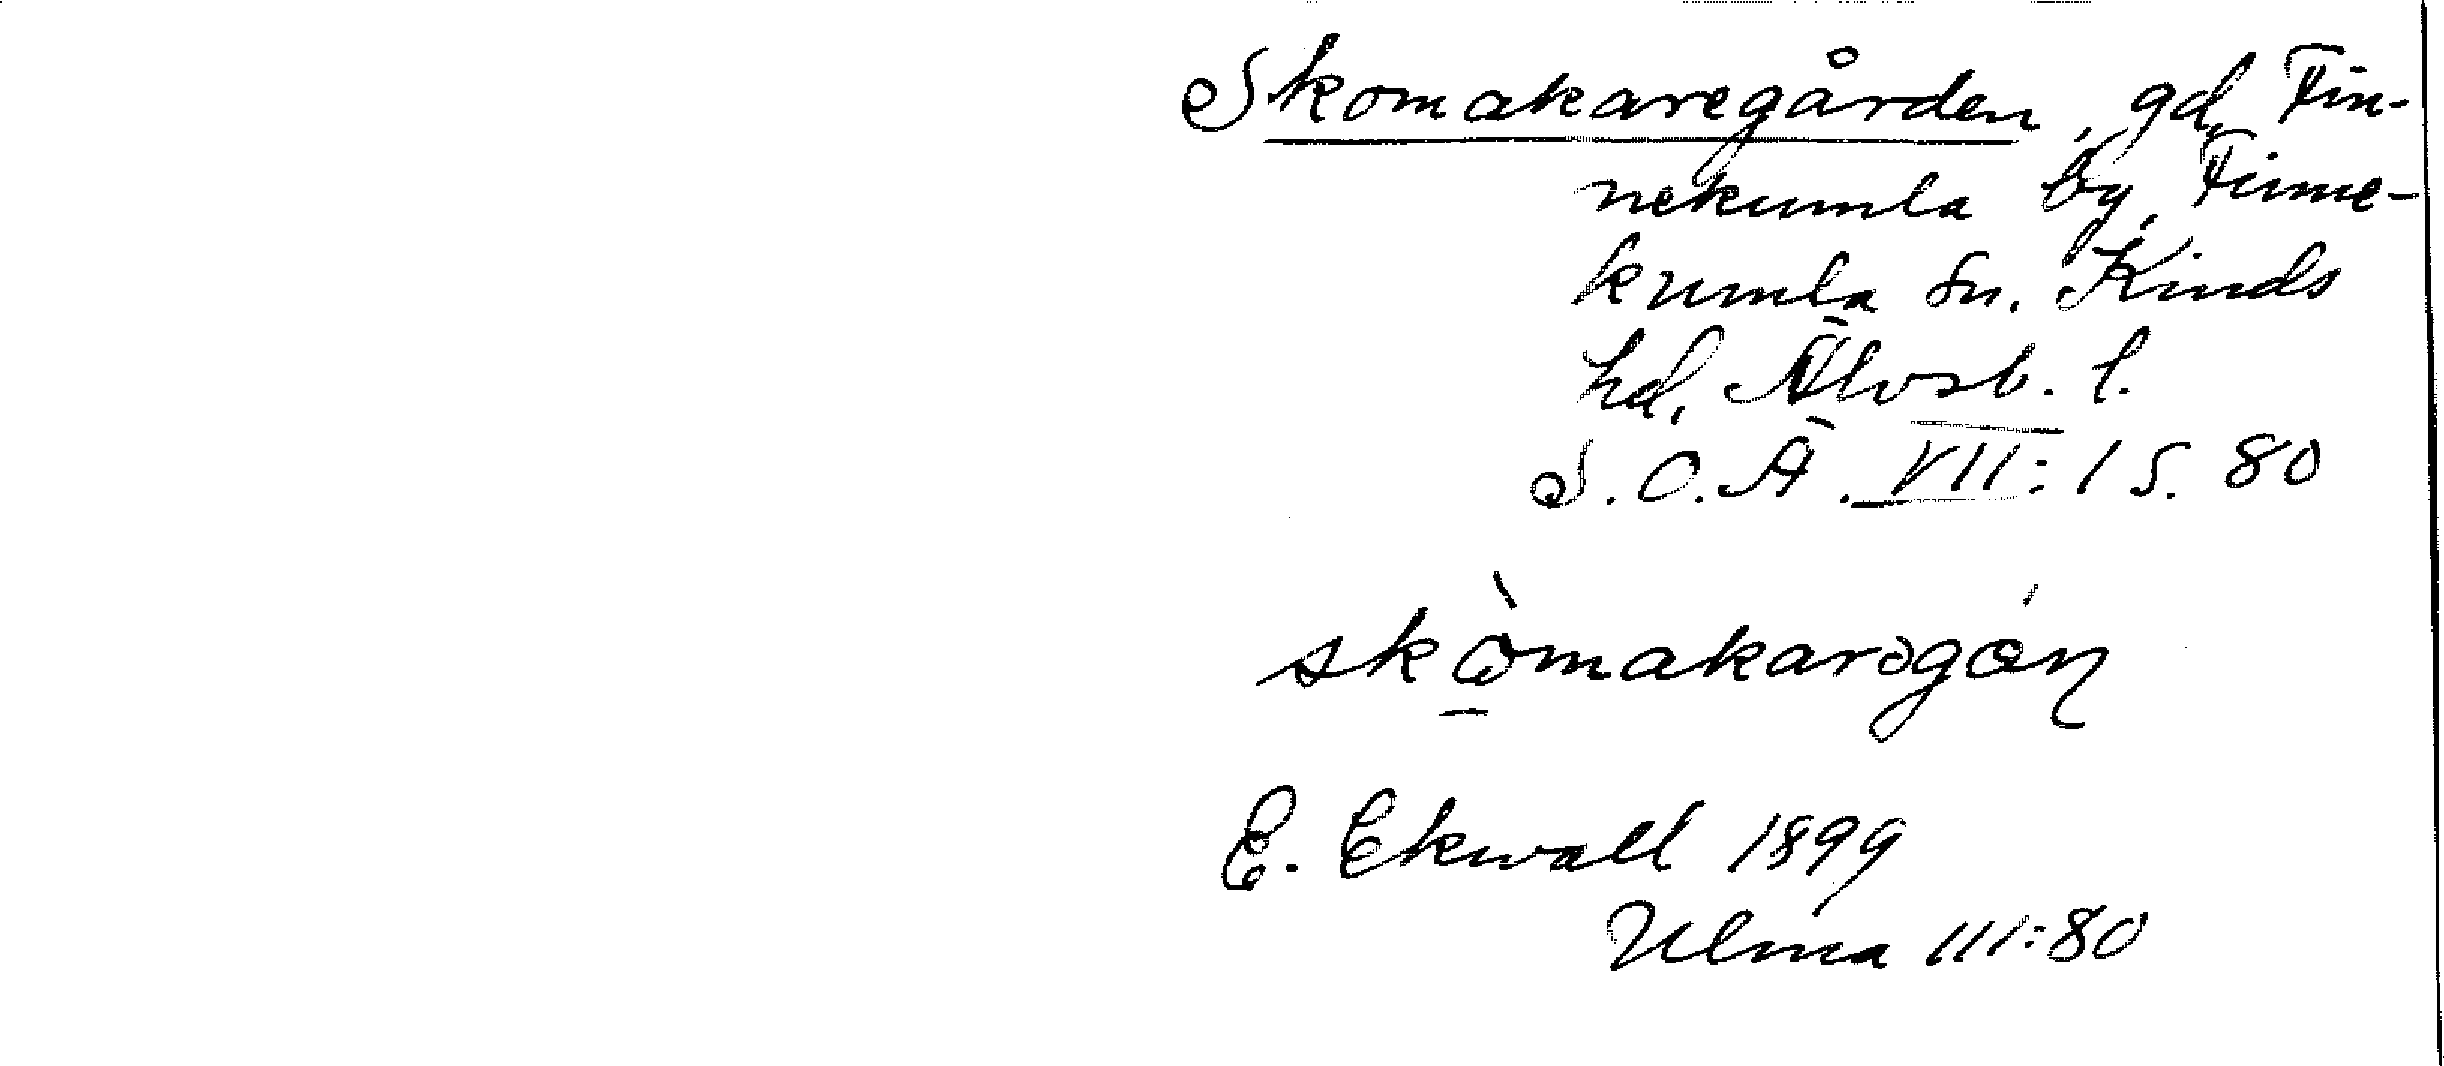 Skomakaregården, gd, Fin-
nekumla by, Finne-
kumla sn. Kinds
hd, Älvsb. l.
S.O.Ä. VII: 1 S. 80
skòmakarəgán
E. Ekwall 1899
Ulma III:80